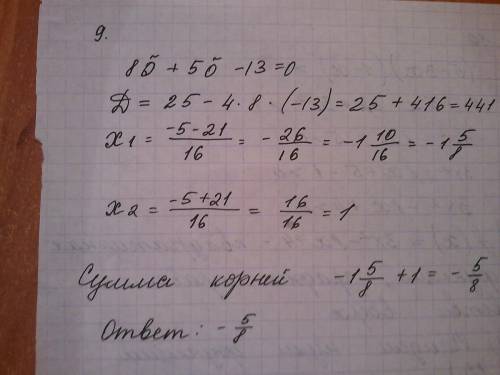 9.
8õ + 5õ - 13 = 0
D = 25 - 4 · 8 · (-13) = 25 + 416 = 441
x1 = (-5-21)/16 = - 26/16 = -1 10/16 = -1 5/8
x2 = (-5+21)/16 = 16/16 = 1
Сумма корней -1 5/8 + 1 = - 5/8
Ответ: - 5/8